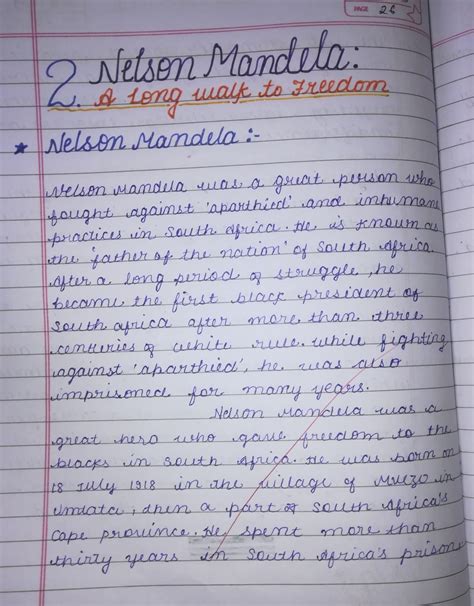 PAGE 26
2. Nelson Mandela:
A Long walk to Freedom
* Nelson Mandela :-
Nelson Mandela was a great person who
fought against 'aparthied' and inhuman
practices in South Africa. He is known as
the 'father of the nation' of South Africa.
After a long period of struggle, he
became the first black president of
South Africa after more than three
centuries of white rule. While fighting
against 'aparthied', he was also
imprisoned for many years.
Nelson Mandela was a
great hero who gave freedom to the
blacks in South Africa. He was born on
18 July 1918 in the village of Mvezo in
Umtata, then a part of South Africa's
Cape province. He spent more than
thirty years in South Africa's prison